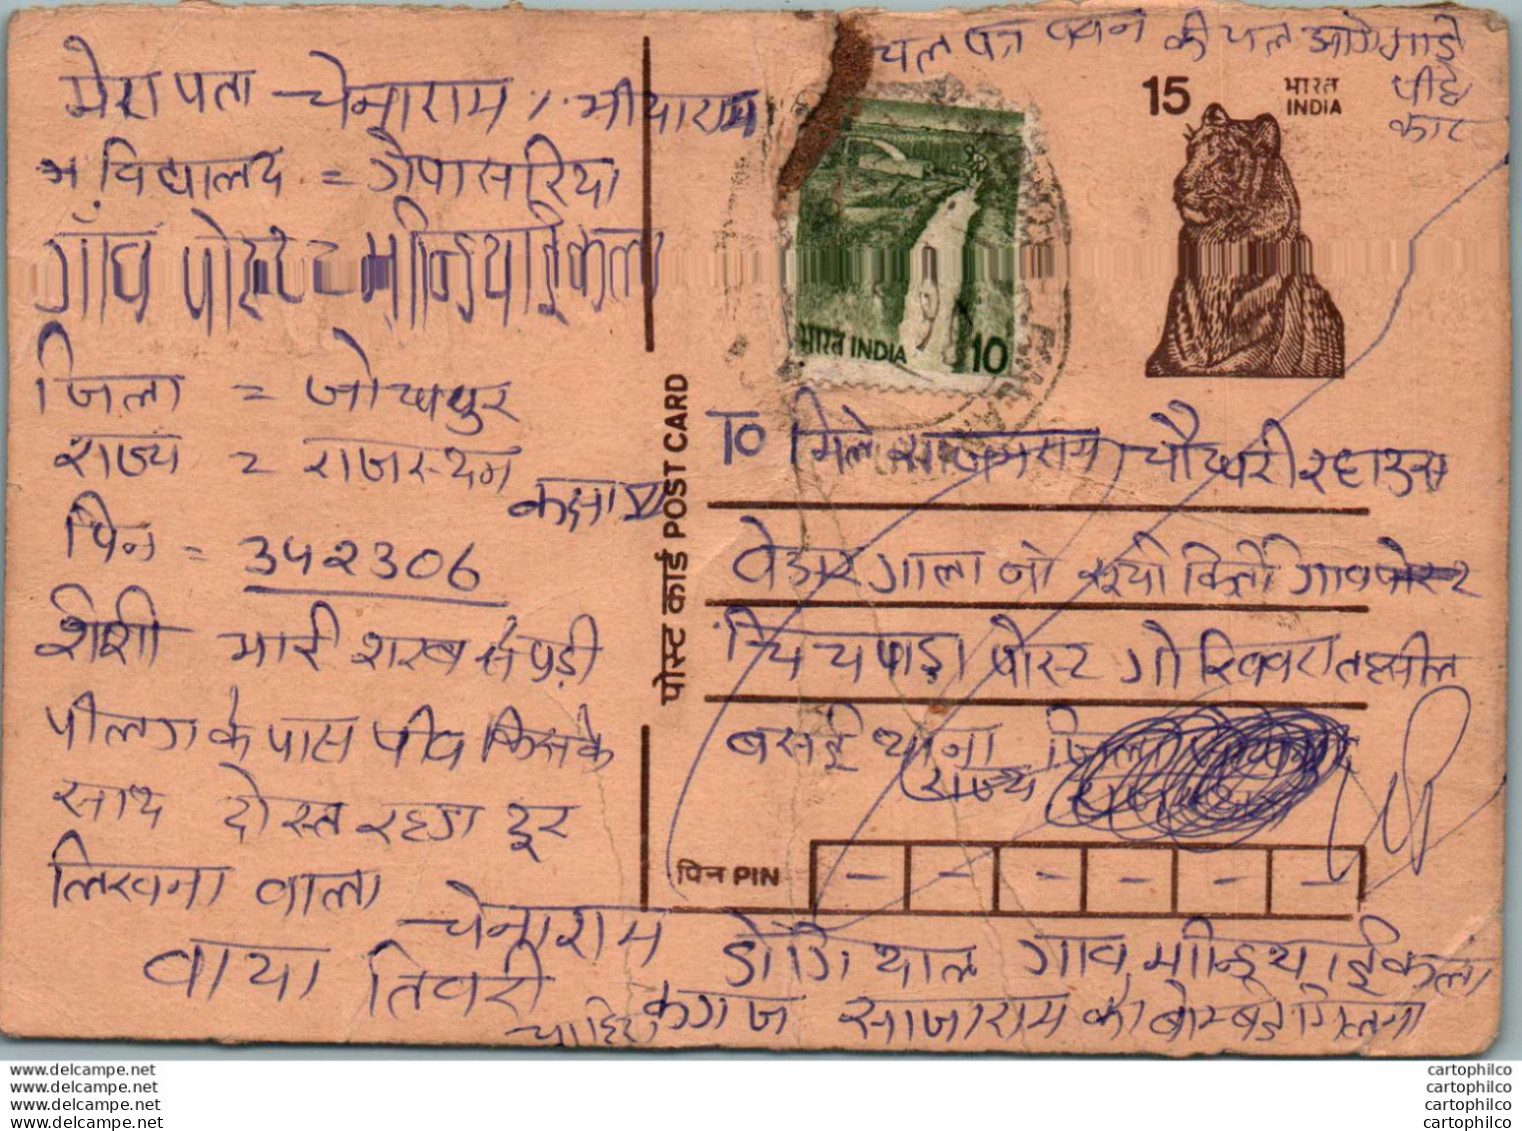 चल पत्र पवन की चल आगे गाडे
पीछे
कार
15
भारत
INDIA
मेरा पता चेनाराम / भीयाराम
विद्यालय = गोपासरिया
गाँव पोस्ट = भीन्डियाईकला
जिला = जोधपुर
राज्य = राजस्थान
कक्षा VI
पिन = 342306
शीशी भरी शरब से पड़ी
पीलग के पास पीव किसके
साथ दोस्त रहगा दूर
लिखना वाला
चेनाराम
वाया तिवरी
भारत INDIA 10
पोस्ट कार्ड POST CARD
TO मिले साजनराम चौधरी रहाउस
वेडार गाला नो गाव पोस्ट
चिचपाड़ा पोस्ट गोखिवरा तहसील
बसई थाना जिला
राज्य
पिन PIN
डोगियाल गाव भीन्डियाईकला
चाहिए कगज साजाराम को बोम्बई मिलना
www.delcampe.net
www.delcampe.net
www.delcampe.net
www.delcampe.net
cartophilco
cartophilco
cartophilco
cartophilco